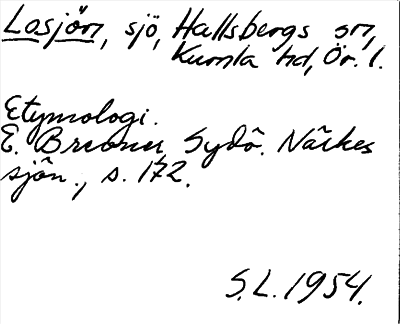 Losjön, sjö, Hallsbergs sn,
Kumla hd, Ör. l.
Etymologi.
E. Brevner, Sydö. Närkes
sjön., s. 172.
S.L. 1954.